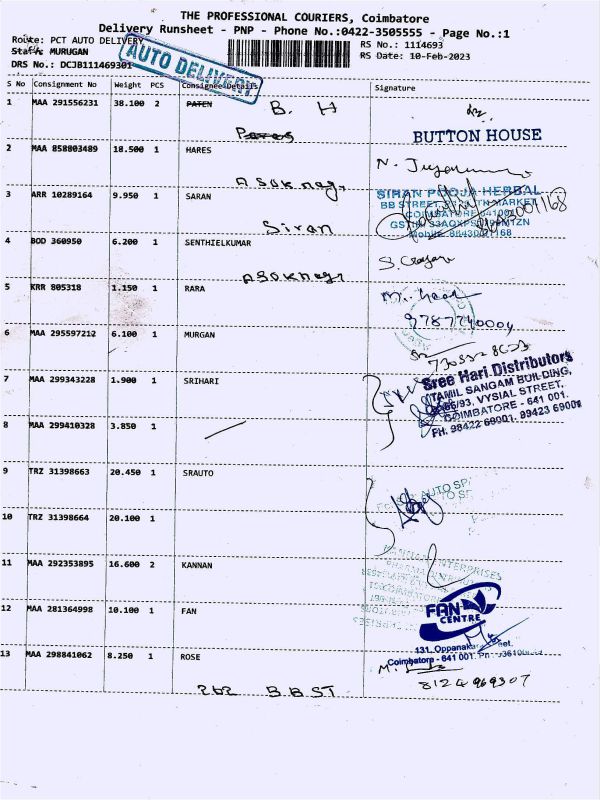 THE PROFESSIONAL COURIERS, Coimbatore
Delivery Runsheet - PNP - Phone No.:0422-3505555 - Page No.:1
Route: PCT AUTO DELIVERY
RS No.: 1114693
Staff: MURUGAN
RS Date: 10-Feb-2023
DRS No.: DCJB111469301
AUTO DELIVERY
S No Consignment No Weight PCS Consignee Details Signature
1 MAA 291556231 38.100 2 PATEN
B. H
BUTTON HOUSE
2 MAA 858003489 18.500 1 HARES
Asoknagr
3 ARR 10289164 9.950 1 SARAN
Siran
SIRAN POOJA HERBAL
4 BOD 360950 6.200 1 SENTHIELKUMAR
Asoknagr
5 KRR 805318 1.150 1 RARA
9787740004
6 MAA 295597212 6.100 1 MURGAN
7 MAA 299343228 1.900 1 SRIHARI
Sree Hari Distributors
TAMIL SANGAM BUILDING,
VYSIAL STREET,
COIMBATORE - 641 001.
PH: 98422 69001, 89423 69001
8 MAA 299410328 3.850 1
9 TRZ 31398663 20.450 1 SRAUTO
AUTO SPA
10 TRZ 31398664 20.100 1
11 MAA 292353895 16.600 2 KANNAN
ENTERPRISES
12 MAA 281364998 10.100 1 FAN
FAN
CENTRE
131, Oppanakara
Coimbatore - 641 001.
13 MAA 298841062 8.250 1 ROSE
262 B.B ST
8124969307